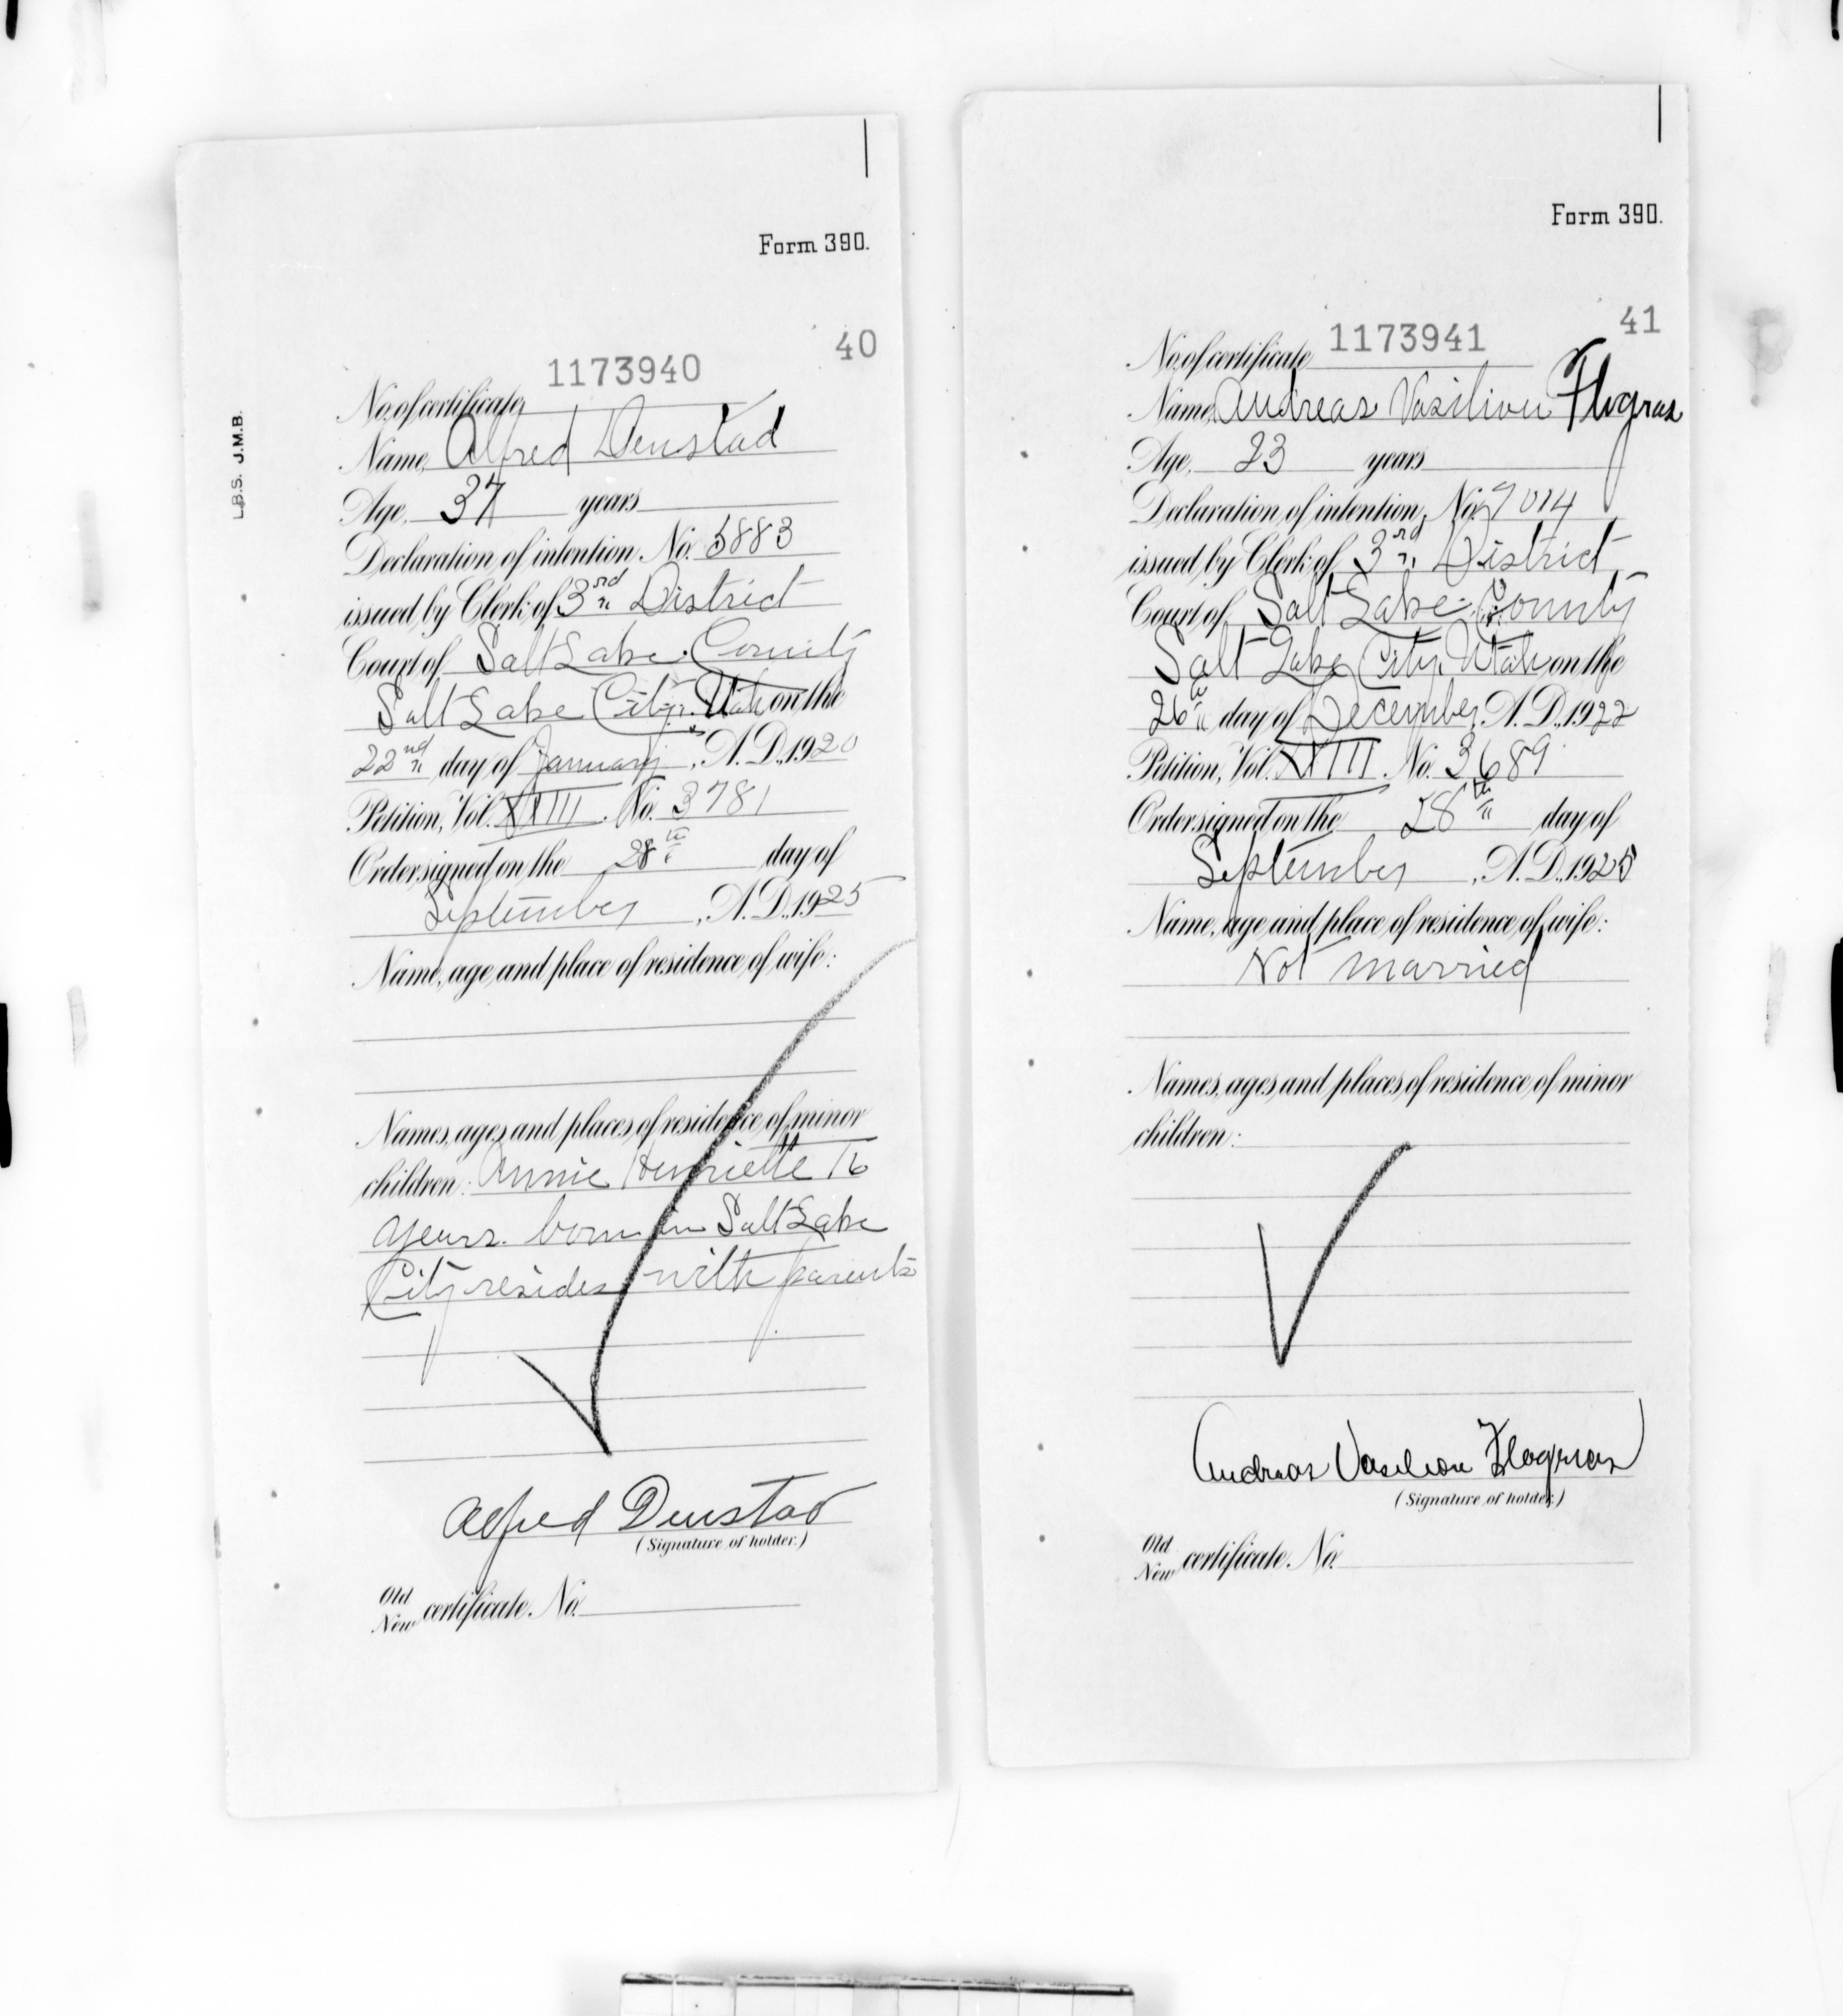 Form 390.
40
L.B.S. J.M.B.
No. of certificate, 1173940
Name, Alfred Denstad
Age, 37 years
Declaration of intention, No. 5883
issued by Clerk of 3rd District
Court of Salt Lake County
Salt Lake City, Utah on the
22nd day of January, A.D. 1920
Petition, Vol. XXIII. No. 3781
Order signed on the 28th day of
September, A.D. 1925
Name, age and place of residence of wife:
Names, ages and places of residence of minor
children: Annie Henriette 16
years. born in Salt Lake
City resides with parents
Alfred Denstad
(Signature of holder.)
Old
New certificate. No.
Form 390.
41
No. of certificate, 1173941
Name, Andreas Vasiliou Flogras
Age, 23 years
Declaration of intention, No. 7014
issued by Clerk of 3rd District
Court of Salt Lake County
Salt Lake City, Utah on the
26th day of December, A.D. 1922
Petition, Vol. XXIII. No. 3689
Order signed on the 28th day of
September, A.D. 1925
Name, age and place of residence of wife:
Not married
Names, ages and places of residence of minor
children:
Andreas Vasiliou Flogras
(Signature of holder.)
Old
New certificate. No.